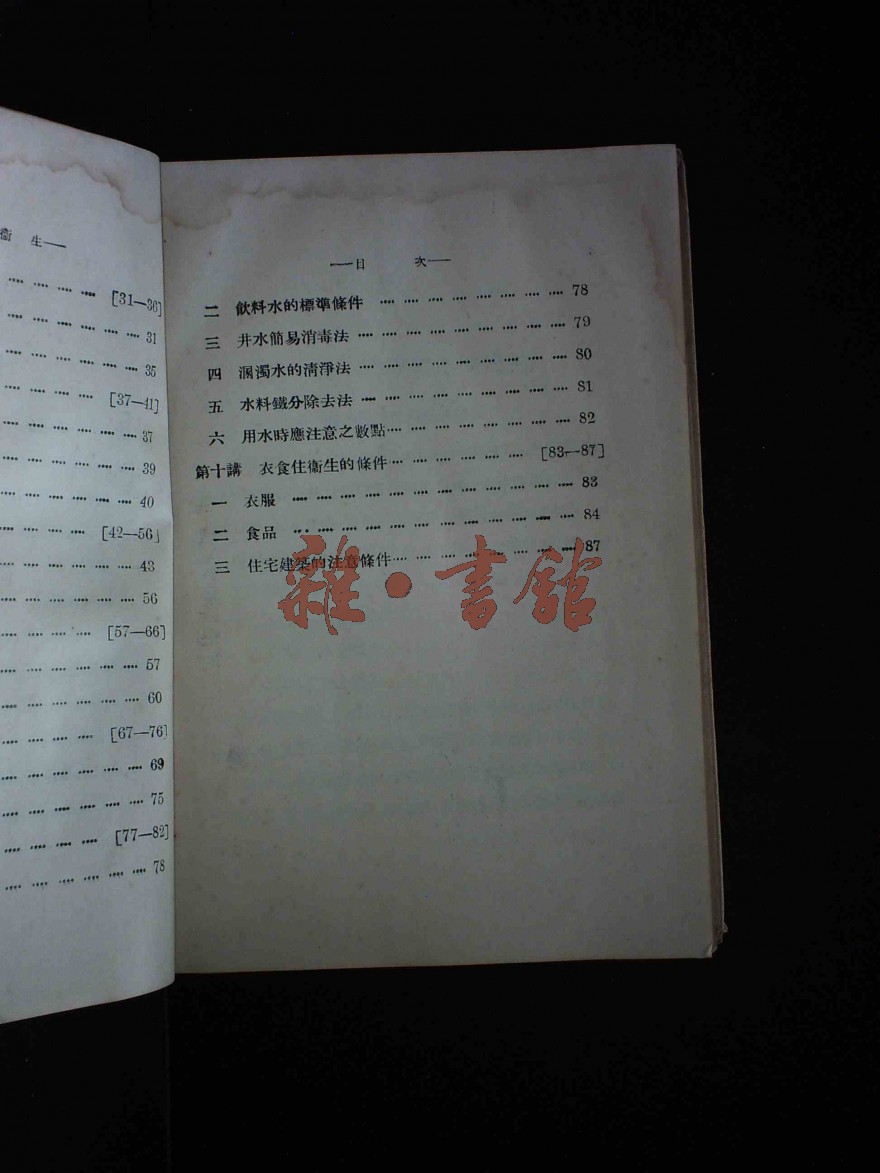 衞 生——
[31—36]
31
35
[37—41]
37
39
40
[42—56]
43
56
[57—66]
57
60
[67—76]
69
75
[77—82]
78
——目 次——
二 飲料水的標準條件 78
三 井水簡易消毒法 79
四 溷濁水的清淨法 80
五 水料鐵分除去法 81
六 用水時應注意之數點 82
第十講 衣食住衞生的條件 [83—87]
一 衣服 83
二 食品 84
三 住宅建築的注意條件 87
雜·書館